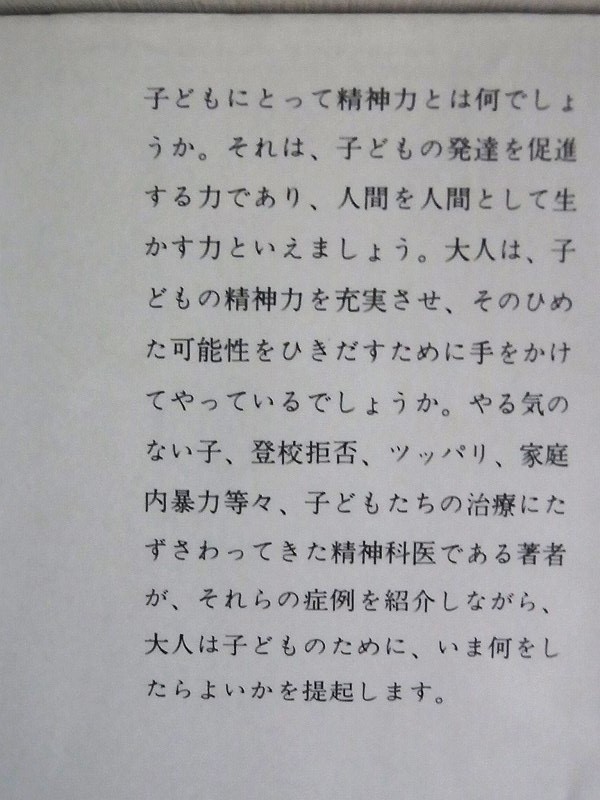 子どもにとって精神力とは何でしょ
うか。それは、子どもの発達を促進
する力であり、人間を人間として生
かす力といえましょう。大人は、子
どもの精神力を充実させ、そのひめ
た可能性をひきだすために手をかけ
てやっているでしょうか。やる気の
ない子、登校拒否、ツッパリ、家庭
内暴力等々、子どもたちの治療にた
ずさわってきた精神科医である著者
が、それらの症例を紹介しながら、
大人は子どものために、いま何をし
たらよいかを提起します。